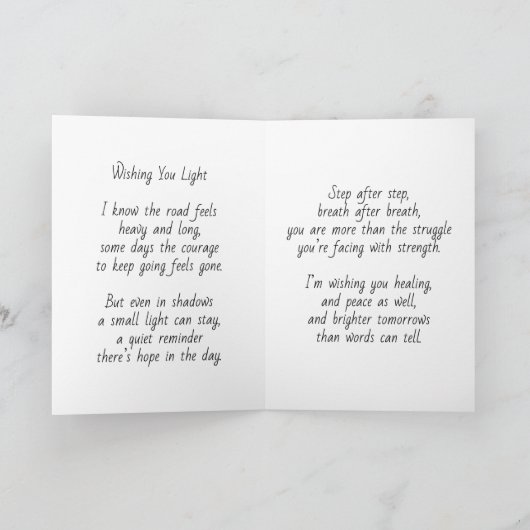 Wishing You Light
I know the road feels
heavy and long,
some days the courage
to keep going feels gone.
But even in shadows
a small light can stay,
a quiet reminder
there's hope in the day.
Step after step,
breath after breath,
you are more than the struggle
you're facing with strength.
I'm wishing you healing,
and peace as well,
and brighter tomorrows
than words can tell.